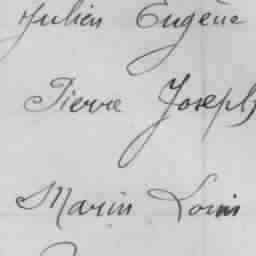 Julien Eugène
Pierre Joseph
Marin Louis